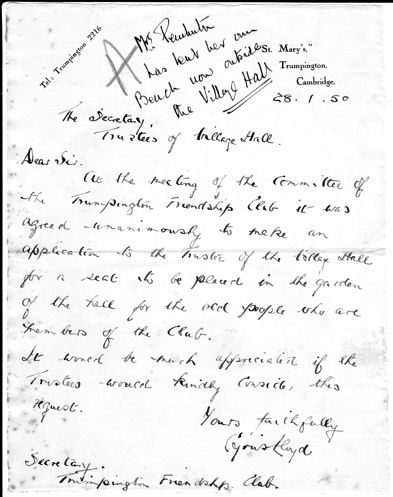 Tel: Trumpington 2216
A
Mrs. Pemberton
has lent her own
Bench now outside
the Village Hall
"St. Mary's,"
Trumpington,
Cambridge.
28.1.50
The Secretary,
Trustees of Village Hall.
Dear Sir.
At the meeting of the Committee of
the Trumpington Friendship Club it was
agreed unanimously to make an
application to the Trustee of the Village Hall
for a seat to be placed in the garden
of the hall for the old people who are
members of the Club.
It would be much appreciated if the
Trustees would kindly consider this
request.
Yours faithfully
Lloyd
Secretary.
Trumpington Friendship Club.